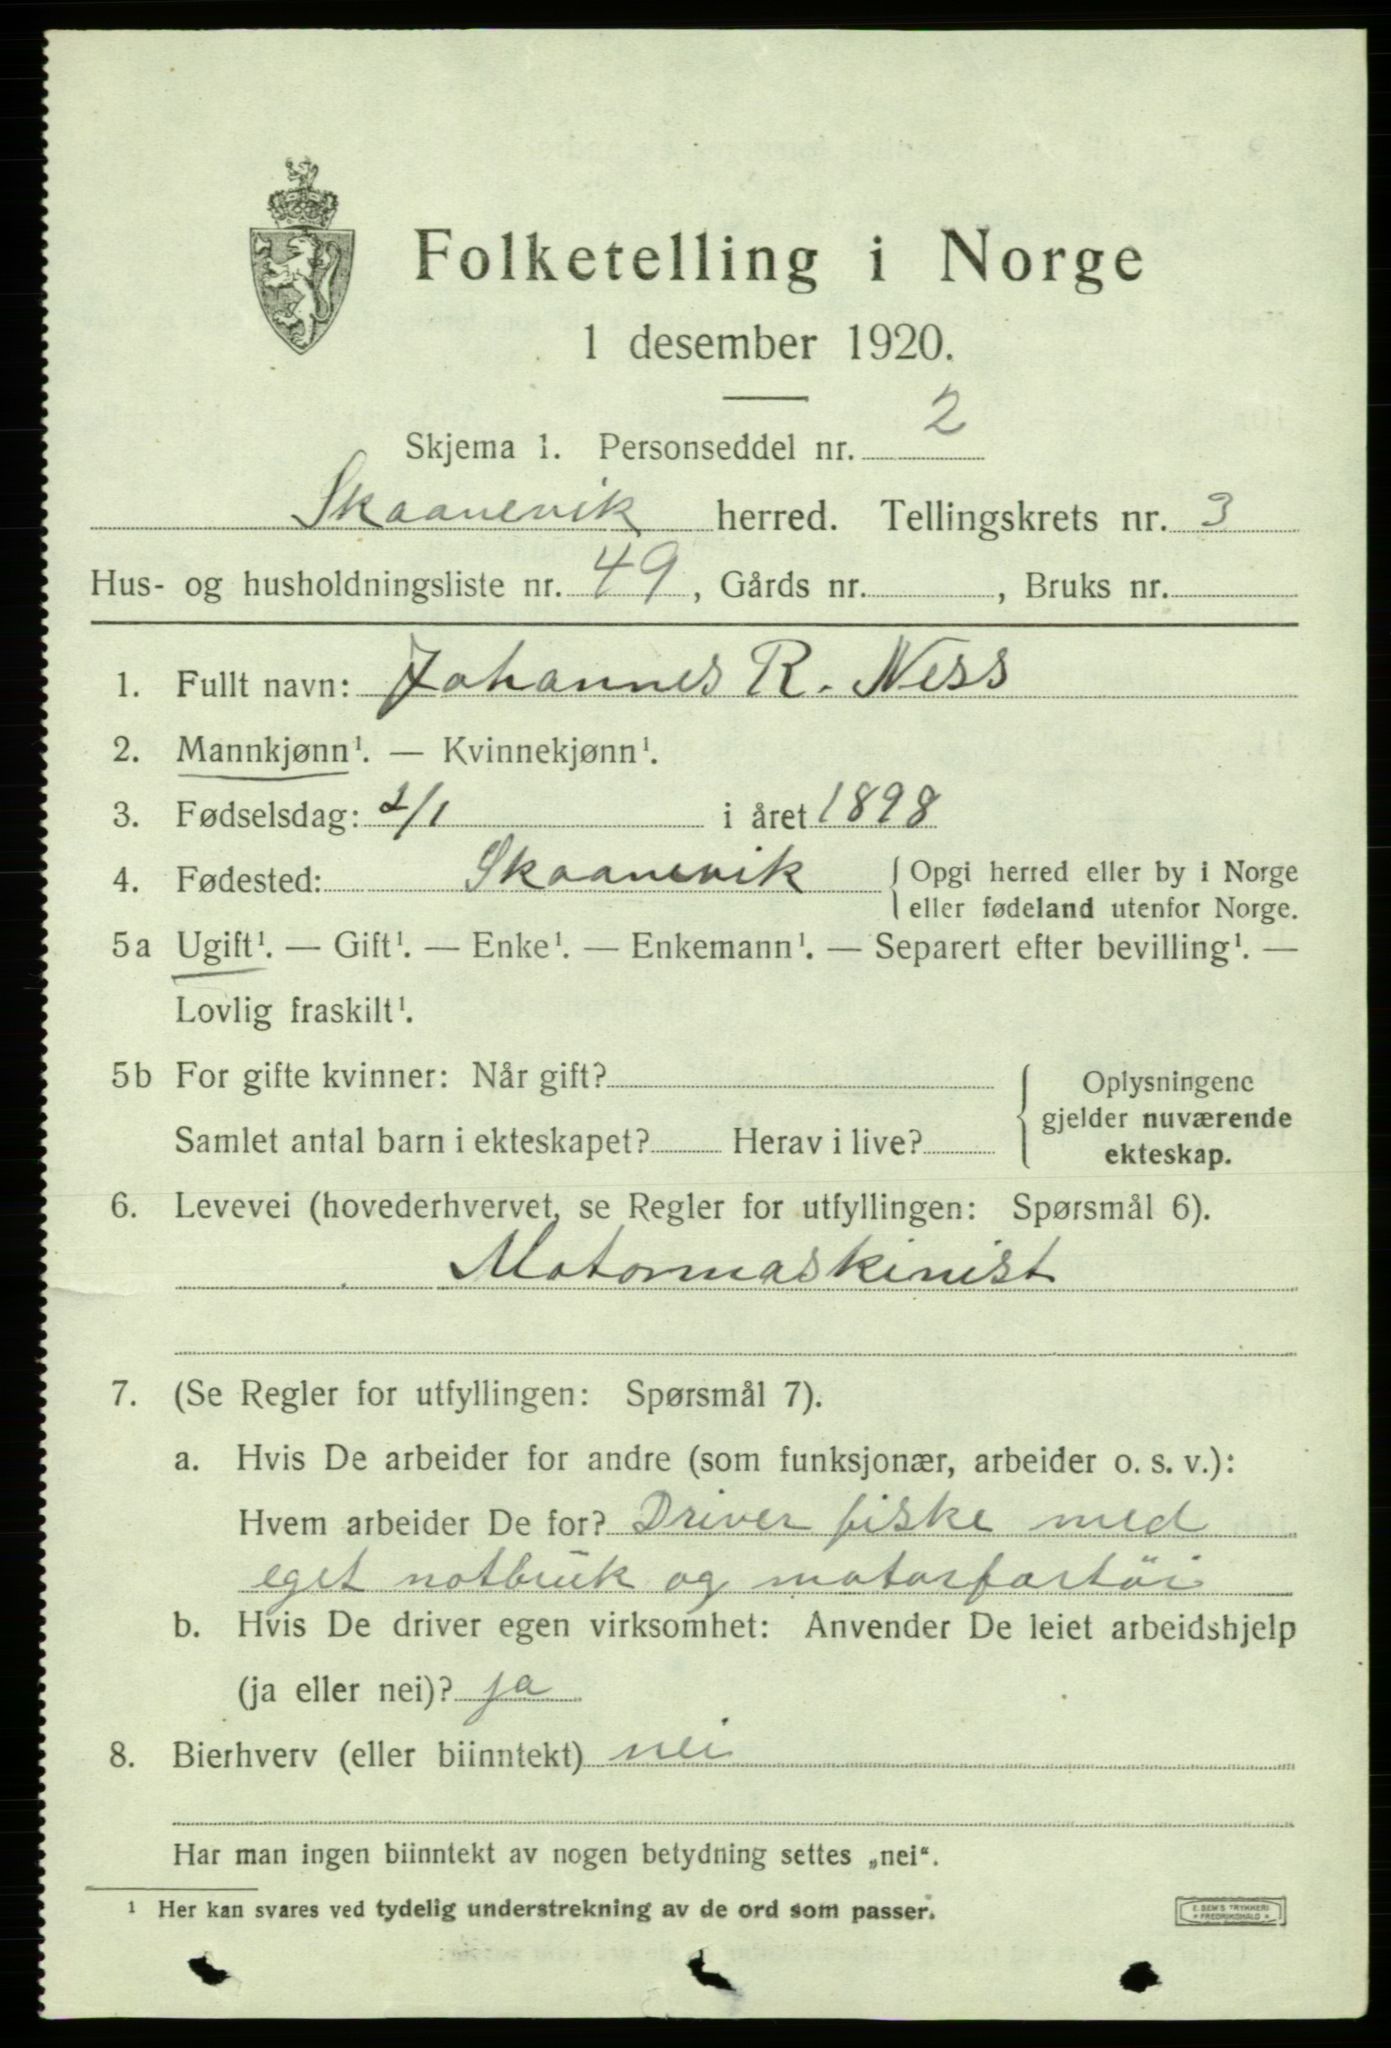 Folketelling i Norge
1 desember 1920.
Skjema 1. Personseddel nr. 2
Skaanevik herred. Tellingskrets nr. 3
Hus- og husholdningsliste nr. 49, Gårds nr. , Bruks nr.
1. Fullt navn: Johannes R. Ness
2. Mannkjønn¹. — Kvinnekjønn¹.
3. Fødselsdag: 2/1 i året 1898
4. Fødested: Skaanevik { Opgi herred eller by i Norge
eller fødeland utenfor Norge.
5a Ugift¹. — Gift¹. — Enke¹. — Enkemann¹. — Separert efter bevilling¹. —
Lovlig fraskilt¹.
5b For gifte kvinner: Når gift? { Oplysningene
gjelder nuværende
Samlet antal barn i ekteskapet? Herav i live?
ekteskap.
6. Levevei (hovederhvervet, se Regler for utfyllingen: Spørsmål 6).
Motormaskinist
7. (Se Regler for utfyllingen: Spørsmål 7).
a. Hvis De arbeider for andre (som funksjonær, arbeider o. s. v.):
Hvem arbeider De for? Driver fiske med
eget notbruk og motorfartöi
b. Hvis De driver egen virksomhet: Anvender De leiet arbeidshjelp
(ja eller nei)? ja
8. Bierhverv (eller biinntekt) nei
Har man ingen biinntekt av nogen betydning settes „nei“.
¹ Her kan svares ved tydelig understrekning av de ord som passer.
E. SEM'S TRYKKERI
FREDRIKSHALD